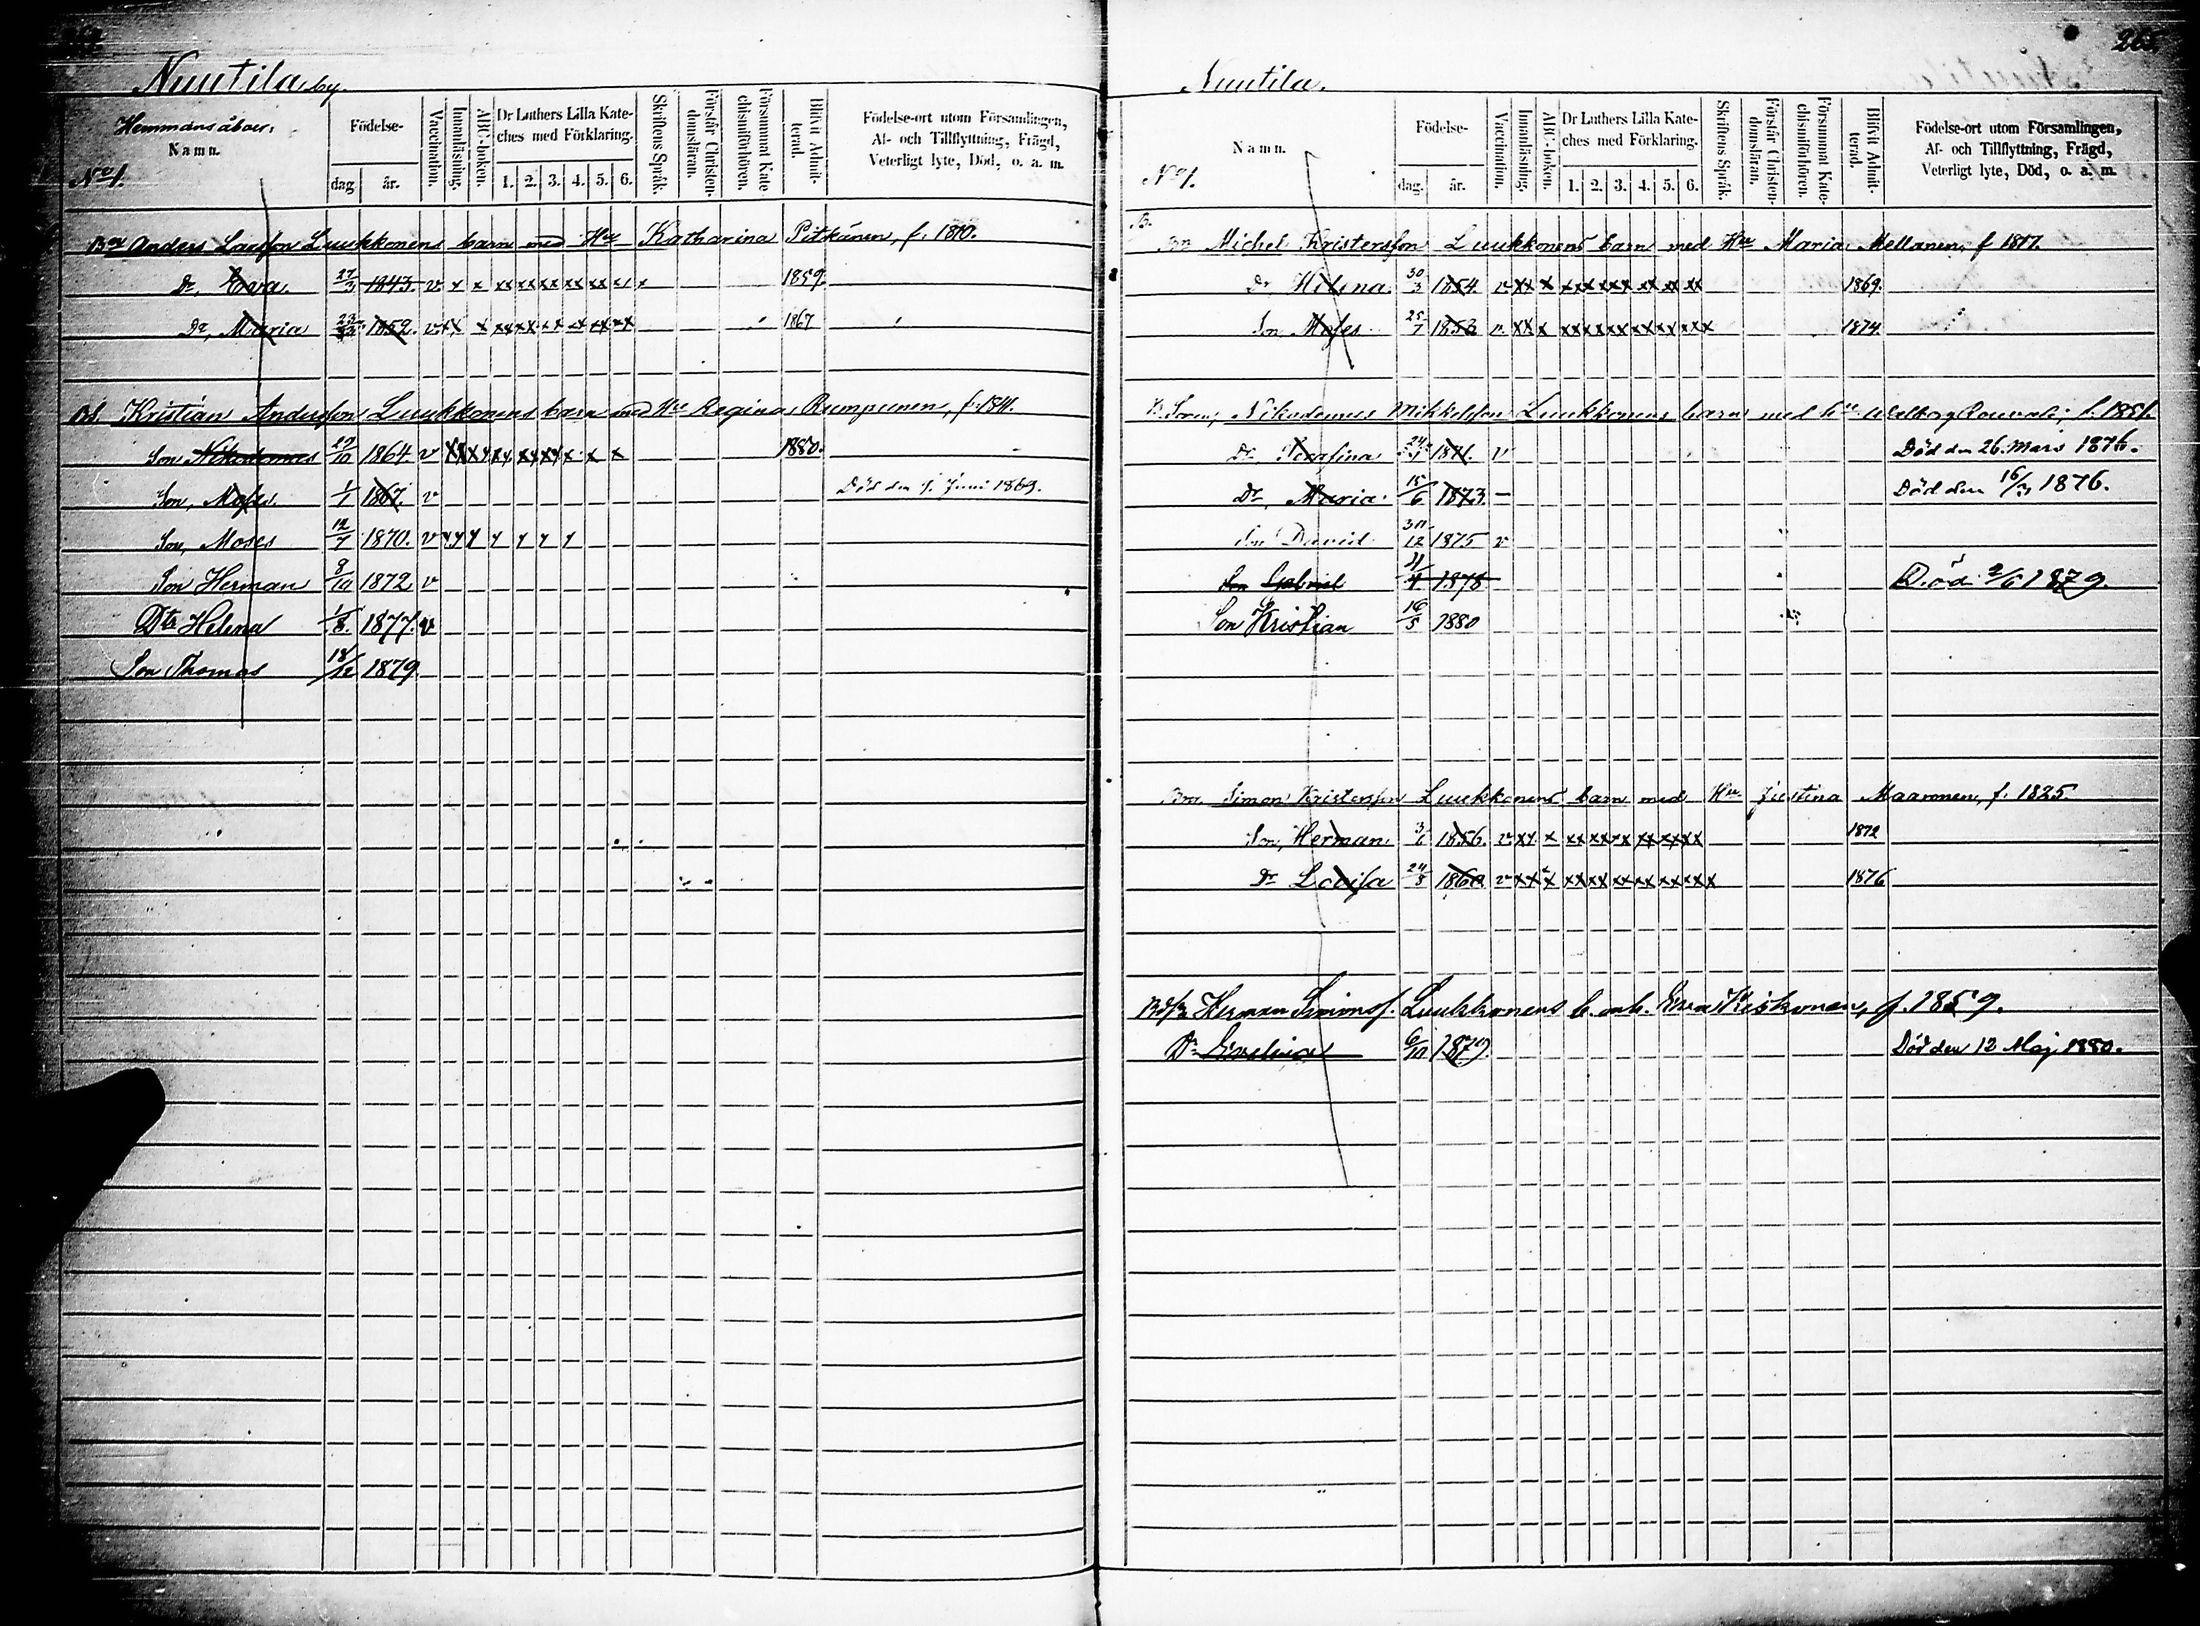 Nuutila by.
Hemmansåboer,
Namn.
No 1.
Födelse-
dag
år.
Vaccination.
Innanläsning.
ABC-boken.
Dr Luthers Lilla Kate-
ches med Förklaring.
1. 2. 3. 4. 5. 6.
Skriftens Språk.
Förstår Christen-
domsläran.
Försummat Kate
chismiförhören.
Blifvit Admit-
terad.
Födelse-ort utom Församlingen,
Af- och Tillflyttning, Frägd,
Veterligt lyte, Död, o. a. m.
Anders Larsson Luukkonens barn med Hu Katharina Pitkänen, f. 1810.
Dr, Eva 27/3 1843. v x x xx xx xx xx xx x x 1859.
Dr, Maria 1852. v xx x xx xx xx xx xx xx 1867
Bd. Kristian Andersson Luukkonens barn med Hu Regina Rumpunen, f.
Son Nikodemus 29/10 1864. v 1880.
Son, Moses 1/1 1867. v Död den 1. Juni 1869.
Son, Moses 12/7 1870. v x x x x x x x
Son Herman 8/10 1872 v
Dtr Helena 1/8. 1877. v
Son Thomas 18/12 1879
Nuutila.
265.
Namn.
No 1.
Födelse-
dag.
år.
Vaccination.
Innanläsning.
ABC-boken.
Dr Luthers Lilla Kate-
ches med Förklaring.
1. 2. 3. 4. 5. 6.
Skriftens Språk.
Förstår Christen-
domsläran.
Försummat Kate-
chismiförhören.
Blifvit Admit-
terad.
Födelse-ort utom Församlingen,
Af- och Tillflyttning, Frägd,
Veterligt lyte, Död, o. a. m.
B.
Bn Michel Kristersson Luukkonens barn med Hu Maria Mellanen, f 1817.
Dr Helena 30/3 1854. v xx x xxx xxx xx xx xx 1869.
Son, Moses 25/7 1853 v. xx x xx xx xx xx xx xxx 1874.
Nikodemus Mikkelsson Luukkonens barn med hu Walborg Rouvali, f. 1851.
Dr. Serafina 24/1 1871. v Död den 26. Mars 1876.
Dr, Maria 15/6 1873. – Död den 16/3 1876.
Son David 30/12 1875 v
Son Gabriel 11/4 1878 Död 2/6 1879.
Son Kristian 16/5 1880
Bror. Simon Kristersson Luukkonens barn med Hu. Justina Maaronen, f. 1825.
Son, Herman 3/6 1856. v xx x xx xx xx xx xx xx 1872
Dr Lovisa 24/8 1860 v xx x xx xx xx xx xx xxx 1876
Herman Simonss. Luukkonens b. m h. Eva Kiiskonen, f. 1859.
Dr Evelina 6/10 1879. Död den 12 Maj 1880.